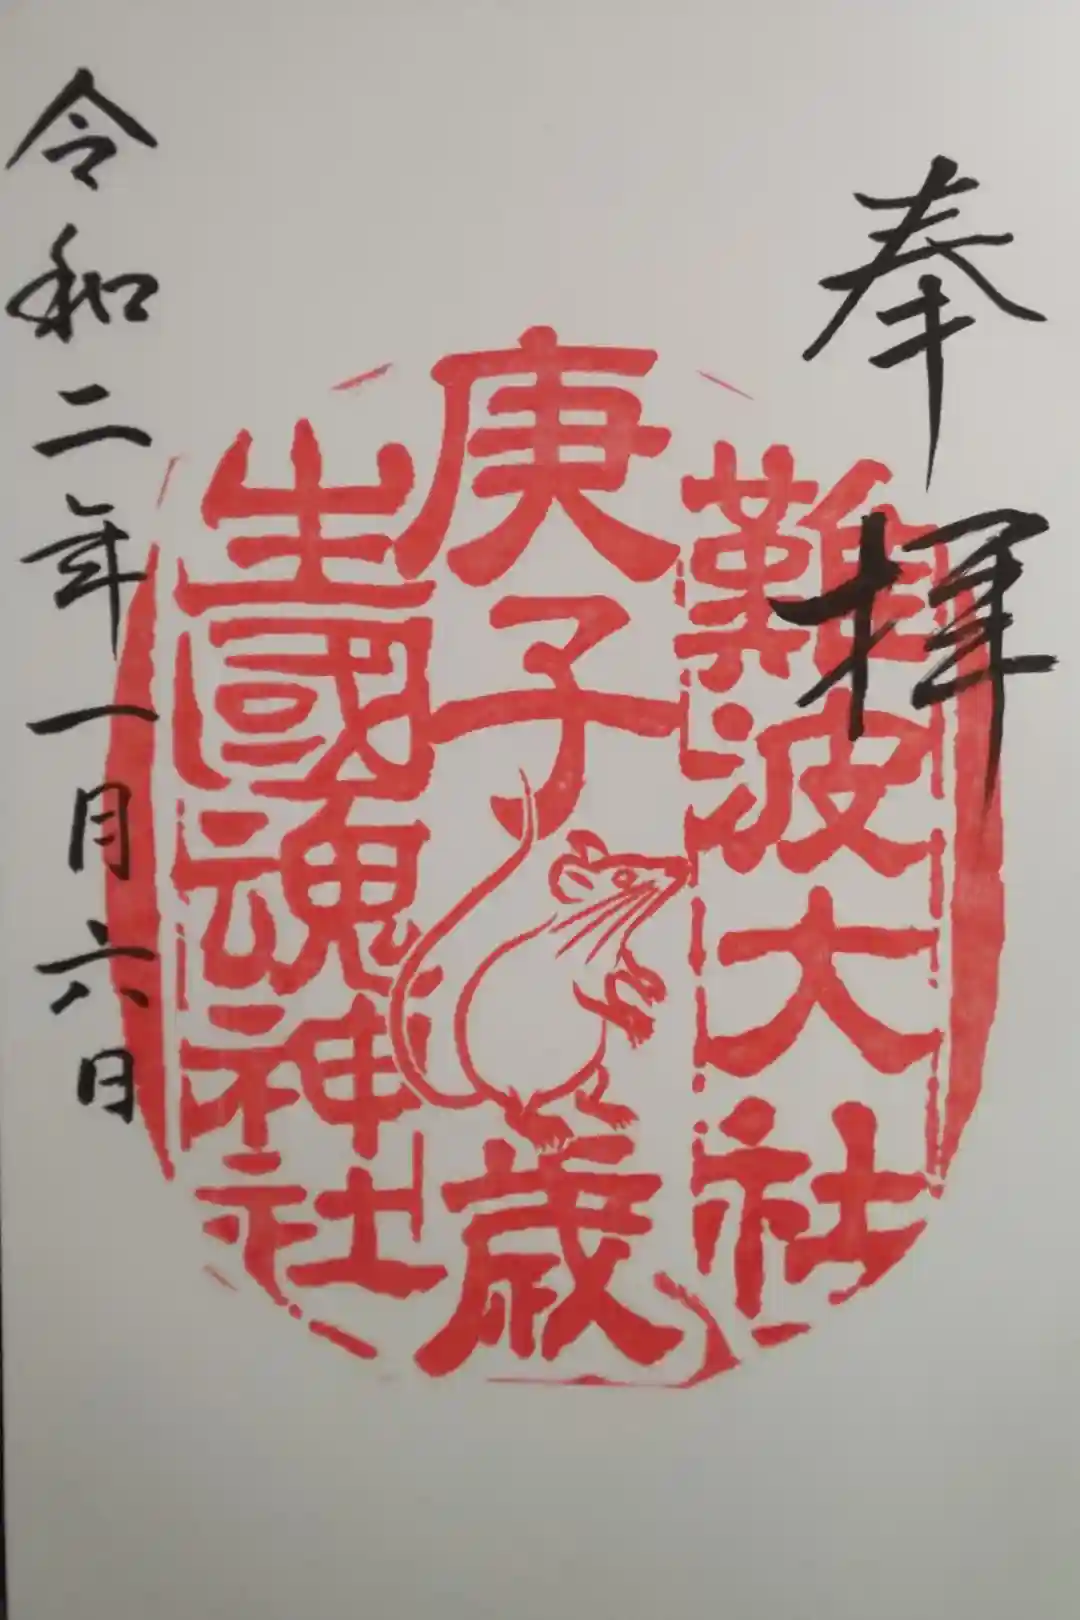 奉拝
難波大社
庚子歳
生國魂神社
令和二年一月六日